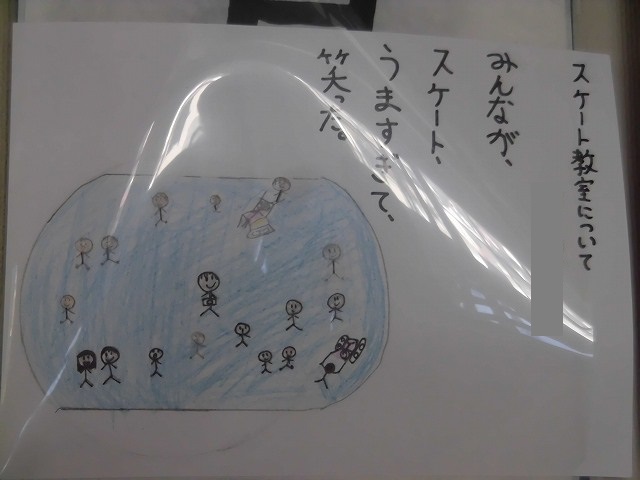 スケート教室について
みんなが、
スケート、
うますぎて、
笑った。